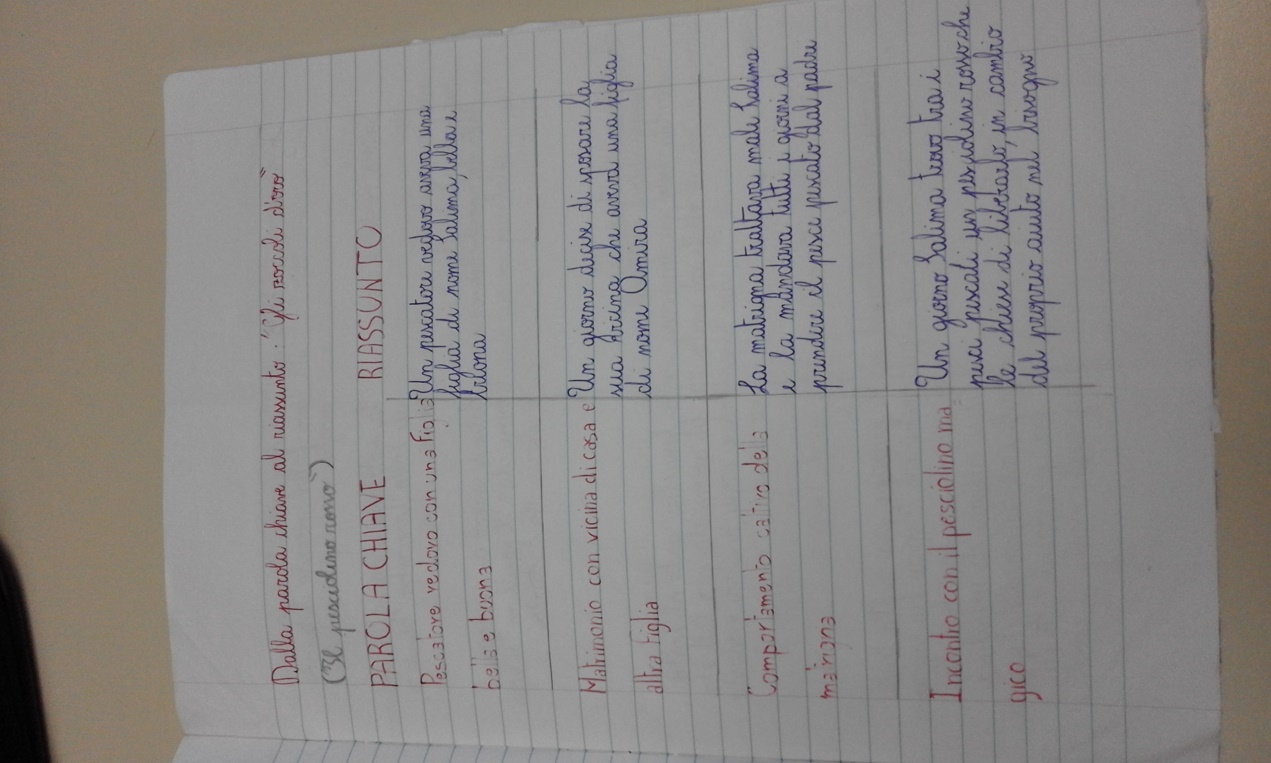 Dalla parola chiave al riassunto: "Gli zoccoli d'oro"
("Il pesciolino rosso")
PAROLA CHIAVE RIASSUNTO
Pescatore vedovo con una figlia
bella e buona
Un pescatore vedovo aveva una
figlia di nome Salima, bella e
buona
Matrimonio con vicina di casa e
altra figlia
Un giorno decise di sposare la
sua vicina che aveva una figlia
di nome Amira
Comportamento cattivo della
matrigna
La matrigna trattava male Salima
e la mandava tutti i giorni a
prendere il pesce pescato dal padre
Incontro con il pesciolino ma=
gico
Un giorno Salima trovò tra i
pesci pescati un pesciolino rosso che
le chiese di liberarlo, in cambio
del proprio aiuto nel bisogno